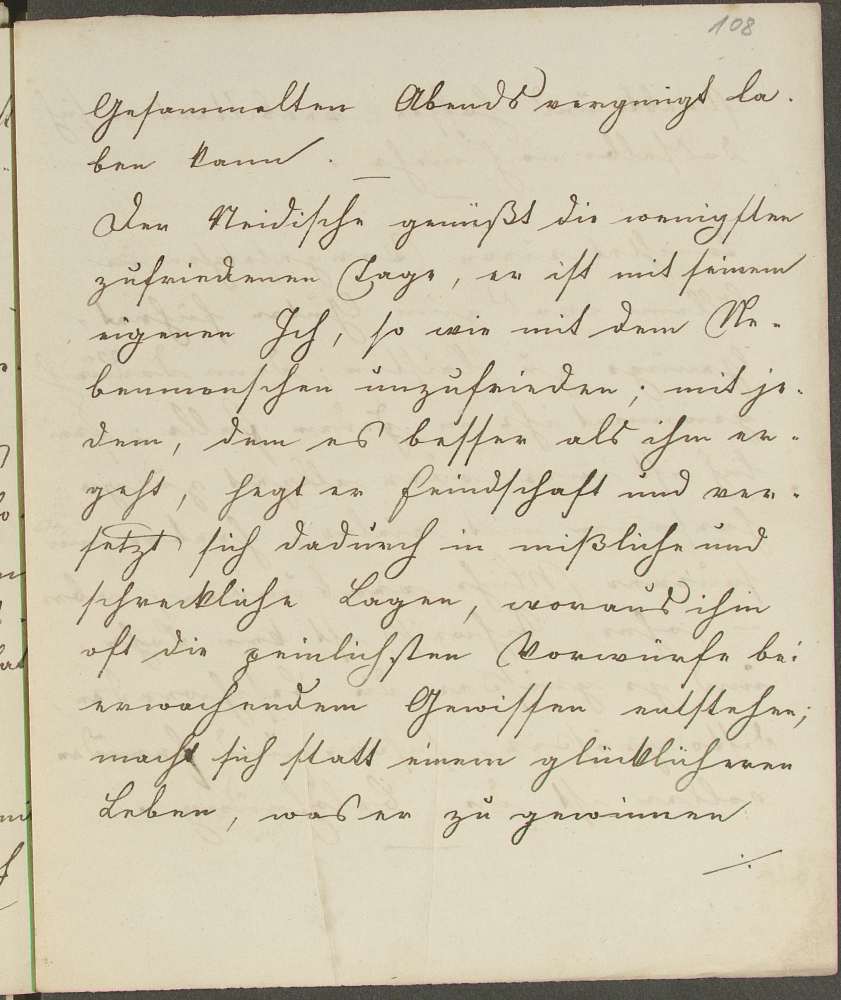 108
Gesammelten Abends vergnügt la-
ben kann.
Der Neidische genüßt die wenigsten
zufriedenen Tage, er ist mit seinem
eigenen Ich, so wie mit dem Ne-
benmenschen unzufrieden; mit je-
dem, dem es besser als ihm er-
geht, hegt er Feindschaft und ver-
setzt sich dadurch in mißliche und
schreckliche Lagen, woraus ihm
oft die peinlichsten Vorwürfe bei
erwachendem Gewissen entstehen;
macht sich statt einem glücklicheren
Leben, was er zu gewinnen
./.